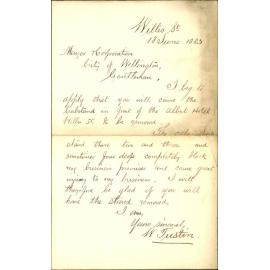 Willis St
18 June 1883
Mayor & Corporation
City of Wellington,
Gentlemen,
I beg to
apply that you will cause the
Cabstand in front of the Albert Hotel
Willis St to be removed.
The cabs
stand there two and three and
sometimes four deep completely block
my business premises and cause great
injury to my business. I will
therefore be glad if you will
have the stand removed
I am,
Yours sincerely,
W Tustin.